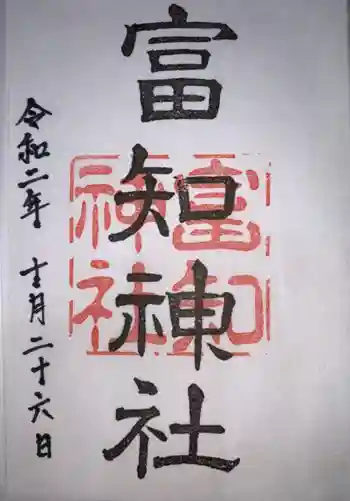 富知神社
令和二年 十二月二十六日
富知
神社